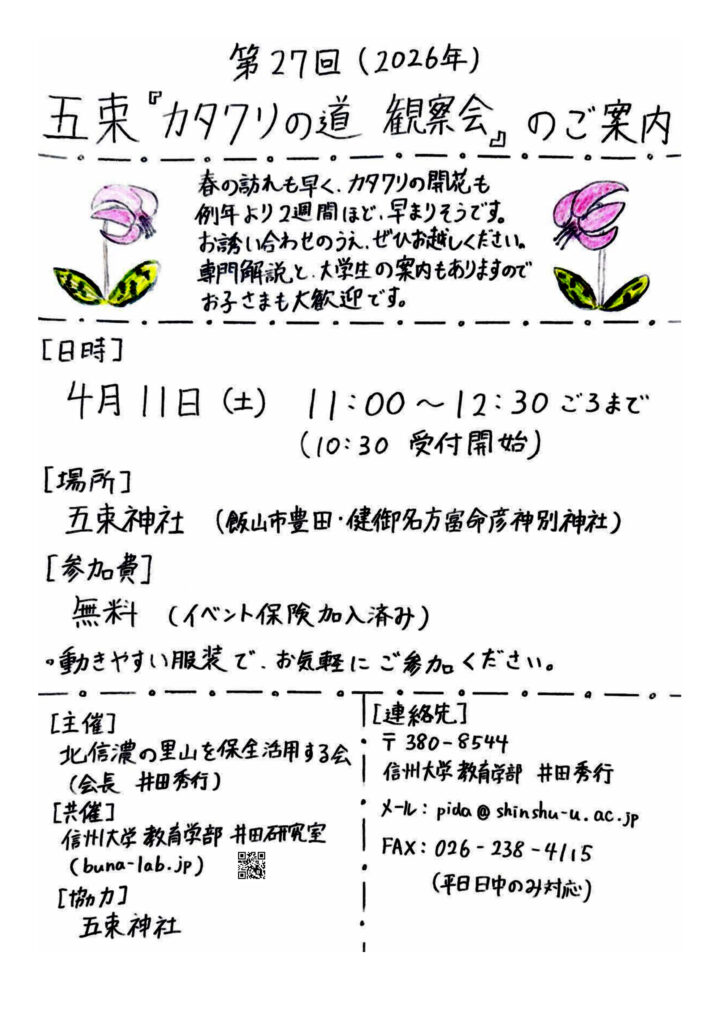 第27回(2026年)
五束『カタクリの道 観察会』のご案内
春の訪れも早く、カタクリの開花も
例年より2週間ほど、早まりそうです。
お誘い合わせのうえ、ぜひお越しください。
専門解説と、大学生の案内もありますので
お子さまも大歓迎です。
[日時]
4月11日(土) 11:00〜12:30ごろまで
(10:30 受付開始)
[場所]
五束神社 (飯山市豊田・健御名方富命彦神別神社)
[参加費]
無料 (イベント保険加入済み)
・動きやすい服装で、お気軽にご参加ください。
[主催]
北信濃の里山を保全活用する会
(会長 井田秀行)
[共催]
信州大学教育学部 井田研究室
(buna-lab.jp)
[協力]
五束神社
[連絡先]
〒380-8544
信州大学教育学部 井田秀行
メール:pida@shinshu-u.ac.jp
FAX:026-238-4115
(平日日中のみ対応)